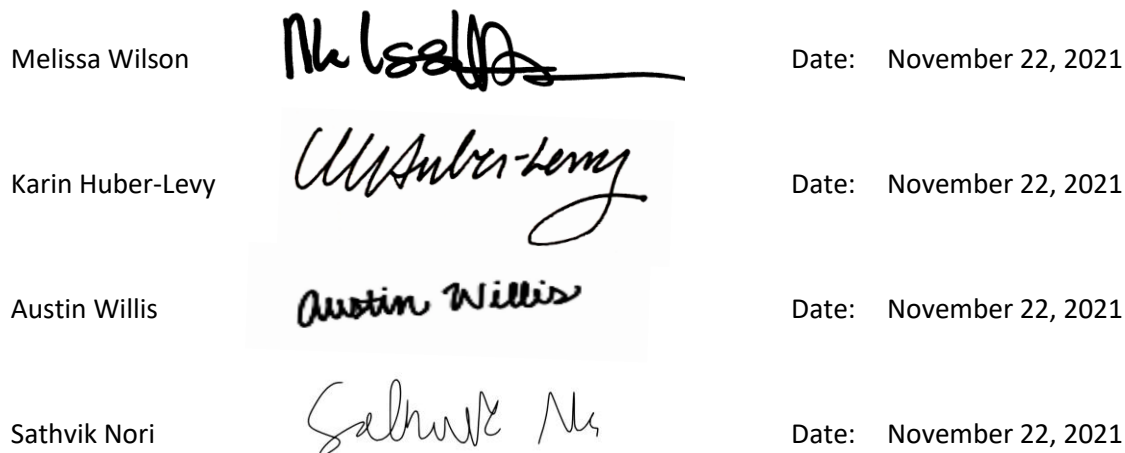 Melissa Wilson Date: November 22, 2021
Karin Huber-Levy Huber-Levy Date: November 22, 2021
Austin Willis Austin Willis Date: November 22, 2021
Sathvik Nori Sathvik Date: November 22, 2021